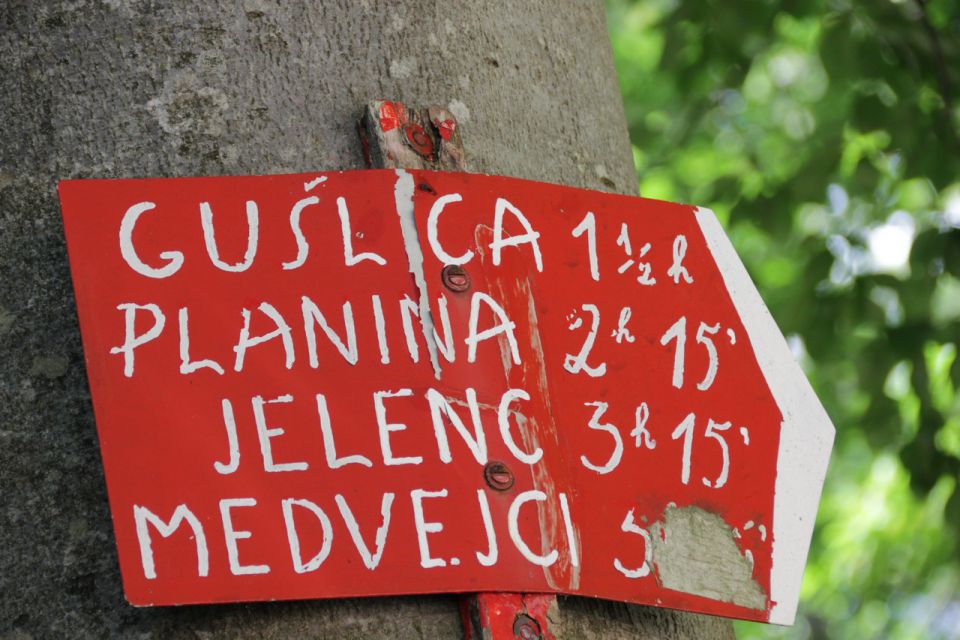 GUŚLCA 1 1/2 h
PLANINA 2h 15'
JELENC 3h 15'
MEDVEJCI